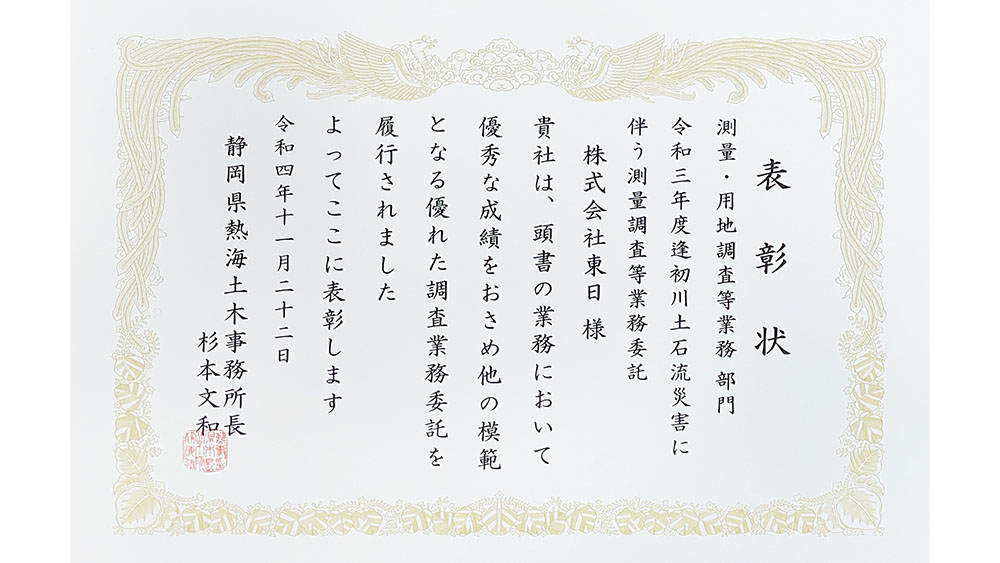 表彰状
測量・用地調査等業務 部門
令和三年度逢初川土石流災害に
伴う測量調査等業務委託
株式会社東日 様
貴社は、頭書の業務において
優秀な成績をおさめ他の模範
となる優れた調査業務委託を
履行されました
よってここに表彰します
令和四年十一月二十二日
静岡県熱海土木事務所長
杉本文和